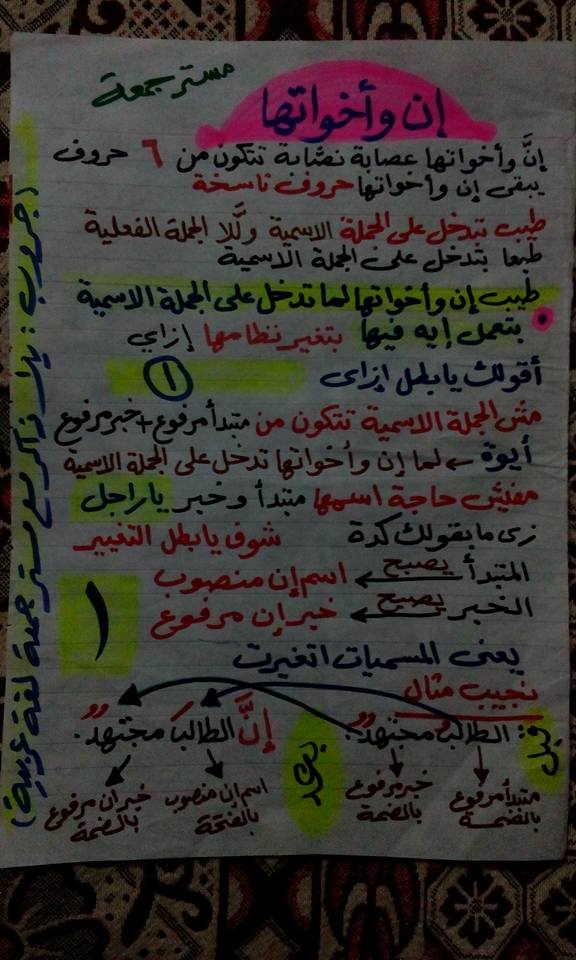 مستر جمعة
إن وأخواتها
إنَّ وأخواتها عصابة نصَّابة تتكون من ٦ حروف
يبقى إن وأخواتها حروف ناسخة
طيب تتدخل على الجملة الاسمية ولَّلا الجملة الفعلية
طبعا بتدخل على الجملة الاسمية
طيب إن وأخواتها لما تدخل على الجملة الاسمية
بتعمل إيه فيها بتغير نظامها إزاي
أقولك يا بطل إزاى ١
مش الجملة الاسمية تتكون من مبتدأ مرفوع + خبر مرفوع
أيوة ← لما إن وأخواتها تدخل على الجملة الاسمية
مفيش حاجة اسمها مبتدأ وخبر يا راجل
زى ما بقولك كدة شوف يا بطل التغيير
المبتدأ يصبح ← اسم إن منصوب
الخبر يصبح ← خبر إن مرفوع
يعنى المسميات اتغيرت
نجيب مثال
قبل : الطالبُ مجتهدٌ. بعد إنَّ الطالبَ مجتهدٌ.
مبتدأ مرفوع بالضمة خبر مرفوع بالضمة اسم إن منصوب بالفتحة خبر إن مرفوع بالضمة
١
(جروب : يلا نذاكر مع مستر جمعة لغة عربية)